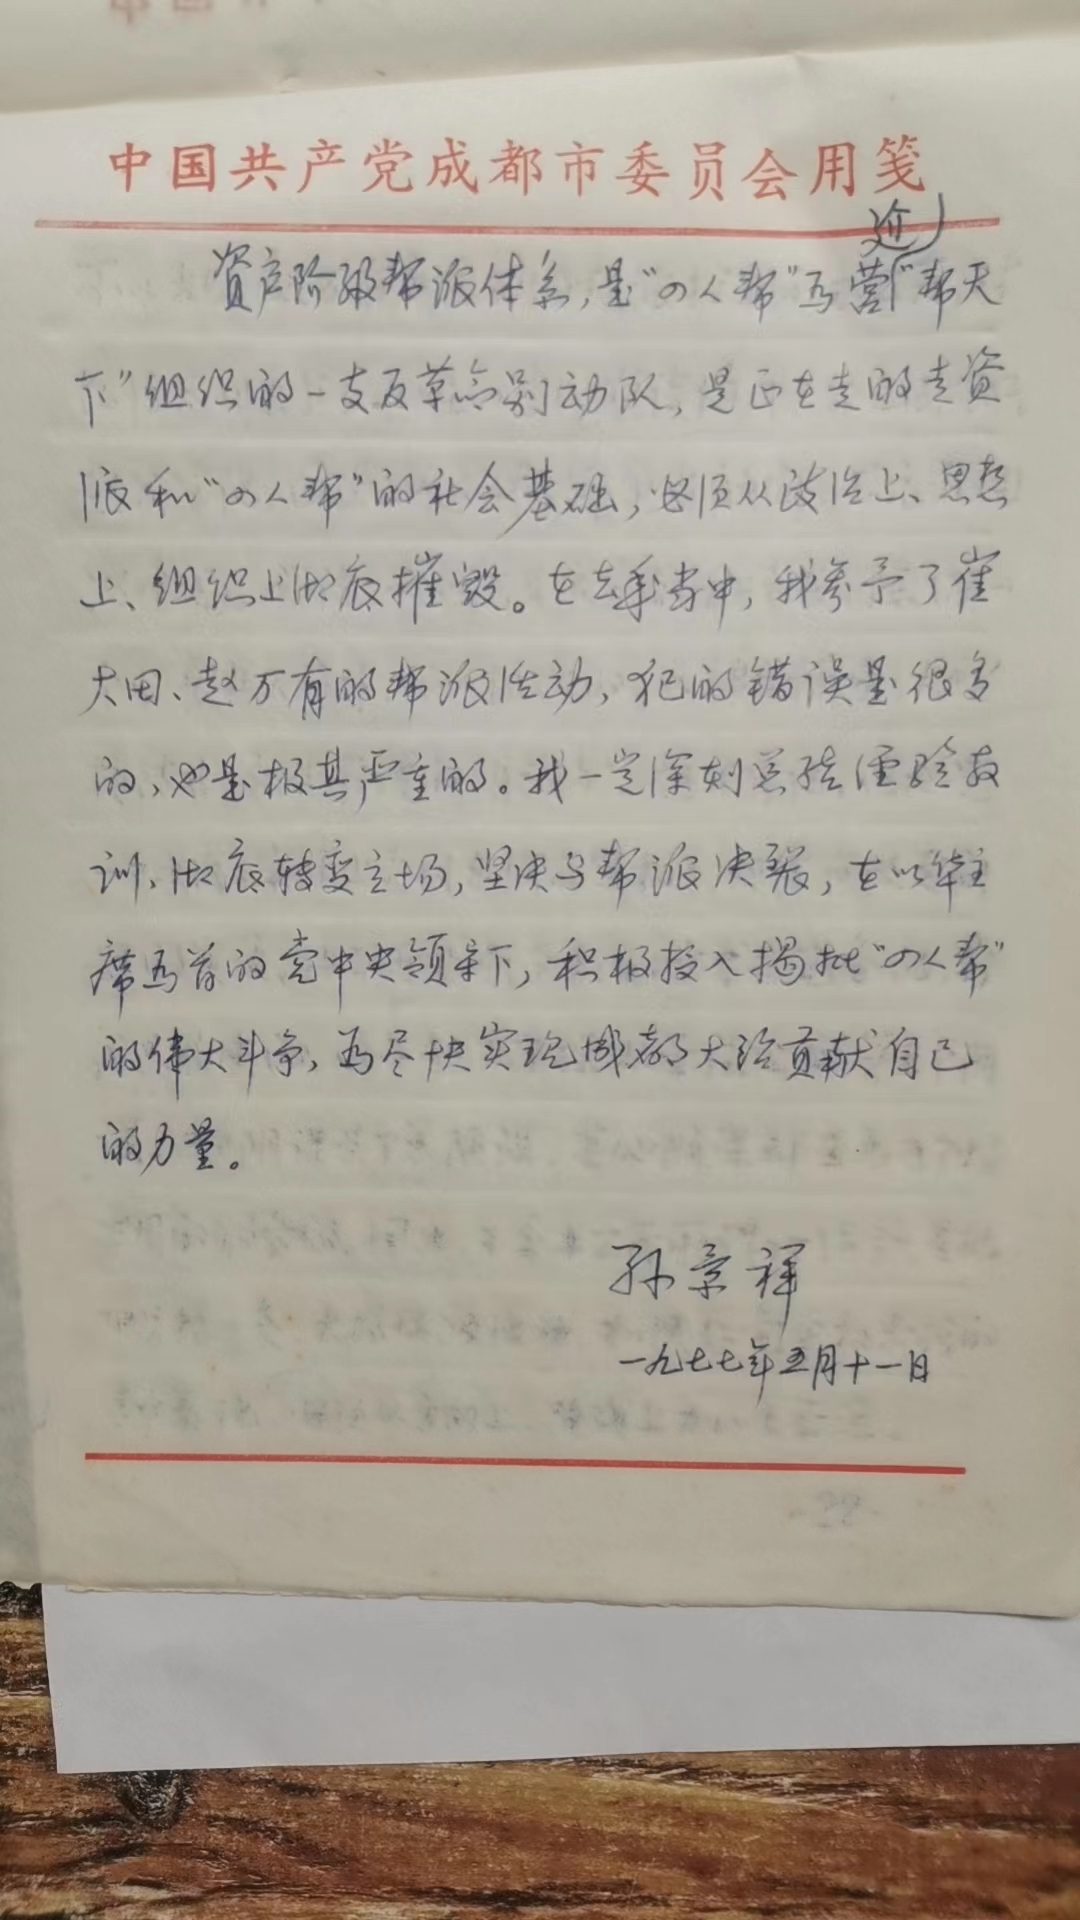 中国共产党成都市委员会用笺
造
资产阶级帮派体系，是“四人帮”为营“帮天
下”组织的一支反革命别动队，是正在走的走资
派和“四人帮”的社会基础，必须从政治上、思想
上、组织上彻底摧毁。在去年当中，我参予了崔
大田、赵万有的帮派活动，犯的错误是很多
的，也是极其严重的。我一定深刻总结经验教
训，彻底转变立场，坚决与帮派决裂，在以华主
席为首的党中央领导下，积极投入揭批“四人帮”
的伟大斗争，为尽快实现成都大治贡献自己
的力量。
孙景祥
一九七七年五月十一日